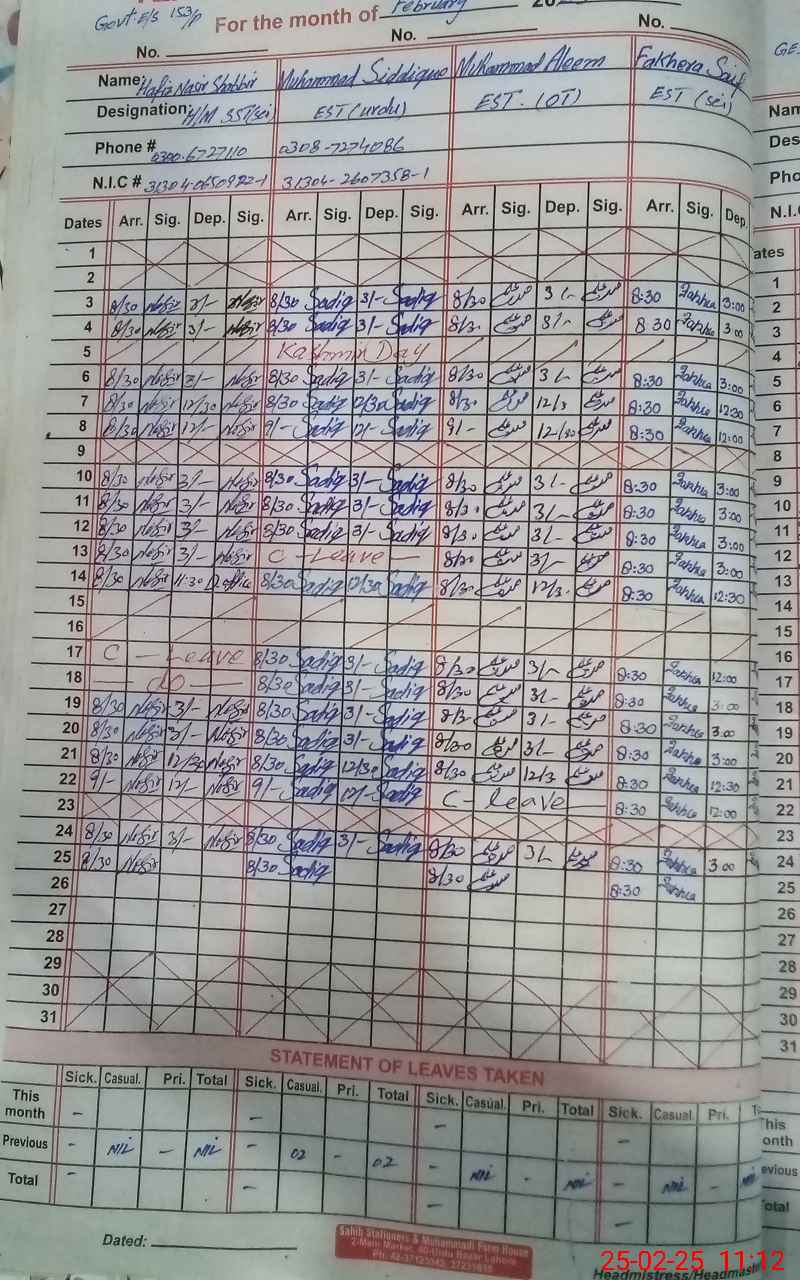 Govt. E/S 153/P
For the month of February 20
No. No. No.
Name: Hafiz Nasir Shabbir Muhammad Siddique Muhammad Aleem Fakhera Saif
Designation: H/M SST/sci EST (urdu) EST. (OT) EST (sci)
Phone # 0300-6727110 0308-7274086
N.I.C # 31304-0650922-1 31304-2607358-1
Dates Arr. Sig. Dep. Sig. Arr. Sig. Dep. Sig. Arr. Sig. Dep. Sig. Arr. Sig. Dep.
1
2
3 8/30 Nasir 3/- Nasir 8/30 Sadiq 3/- Sadiq 8/30 3/- 8:30 Fakhra 3:00
4 8/30 Nasir 3/- Nasir 8/30 Sadiq 3/- Sadiq 8/30 3/- 8:30 Fakhra 3:00
5 Kashmir Day
6 8/30 Nasir 3/- Nasir 8/30 Sadiq 3/- Sadiq 8/30 3/- 8:30 Fakhra 3:00
7 8/30 Nasir 12/30 Nasir 8/30 Sadiq 12/30 Sadiq 8/30 12/3 8:30 Fakhra 12:30
8 8/30 Nasir 12/- Nasir 9/- Sadiq 12/- Sadiq 9/- 12/30 8:30 Fakhra 12:00
9
10 8/30 Nasir 3/- Nasir 8/30 Sadiq 3/- Sadiq 8/30 3/- 8:30 Fakhra 3:00
11 8/30 Nasir 3/- Nasir 8/30 Sadiq 3/- Sadiq 8/30 3/- 8:30 Fakhra 3:00
12 8/30 Nasir 3/- Nasir 8/30 Sadiq 3/- Sadiq 8/30 3/- 8:30 Fakhra 3:00
13 8/30 Nasir 3/- Nasir C - Leave - 8/30 3/- 8:30 Fakhra 3:00
14 8/30 Nasir 11:30 8/30 Sadiq 12/30 Sadiq 8/30 12/3. 8:30 Fakhra 12:30
15
16
17 C - Leave 8/30 Sadiq 3/- Sadiq 8/30 3/- 8:30 Fakhra 12:00
18 - do - 8/30 Sadiq 3/- Sadiq 8/30 3/- 8:30 Fakhra 3:00
19 8/30 Nasir 3/- Nasir 8/30 Sadiq 3/- Sadiq 8/30 3/- 8:30 Fakhra 3:00
20 8/30 Nasir 3/- Nasir 8/30 Sadiq 3/- Sadiq 8/30 3/- 8:30 Fakhra 3:00
21 8/30 Nasir 12/30 Nasir 8/30 Sadiq 12/30 Sadiq 8/30 12/3 8:30 Fakhra 12:30
22 9/- Nasir 12/- Nasir 9/- Sadiq 12/- Sadiq C - leave 8:30 Fakhra 12:00
23
24 8/30 Nasir 3/- Nasir 8/30 Sadiq 3/- Sadiq 8/30 3/- 8:30 Fakhra 3:00
25 8/30 Nasir 8/30 Sadiq 8/30 8:30 Fakhra
26
27
28
29
30
31
STATEMENT OF LEAVES TAKEN
Sick. Casual. Pri. Total Sick. Casual. Pri. Total Sick. Casual. Pri. Total Sick. Casual. Pri.
This month - - - -
Previous - Nil - Nil - 02 - 02 - Nil - Nil - Nil - Nil
Total - - - -
Dated:
Sahib Stationers & Muhammadi Form House
2-Main Market, 40-Urdu Bazar Lahore
25-02-25 11:12
Headmistress/Headmaster